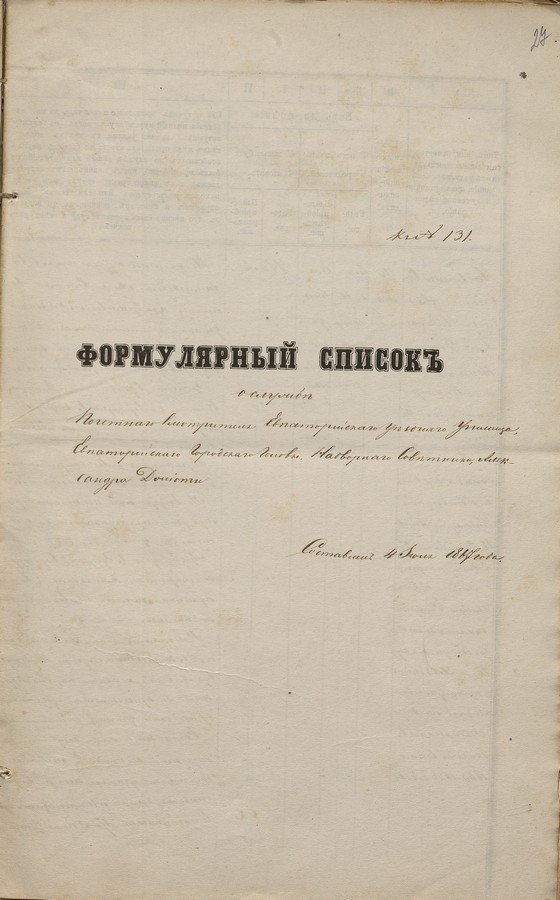 27
к № 131.
ФОРМУЛЯРНЫЙ СПИСОКЪ
о службѣ
Почетнаго Смотрителя Евпаторійскаго Уѣзднаго Училища,
Евпаторійскаго Городскаго Головы, Надворнаго Совѣтника, Алек-
сандра
Составленъ 4 Іюля 1867 года.